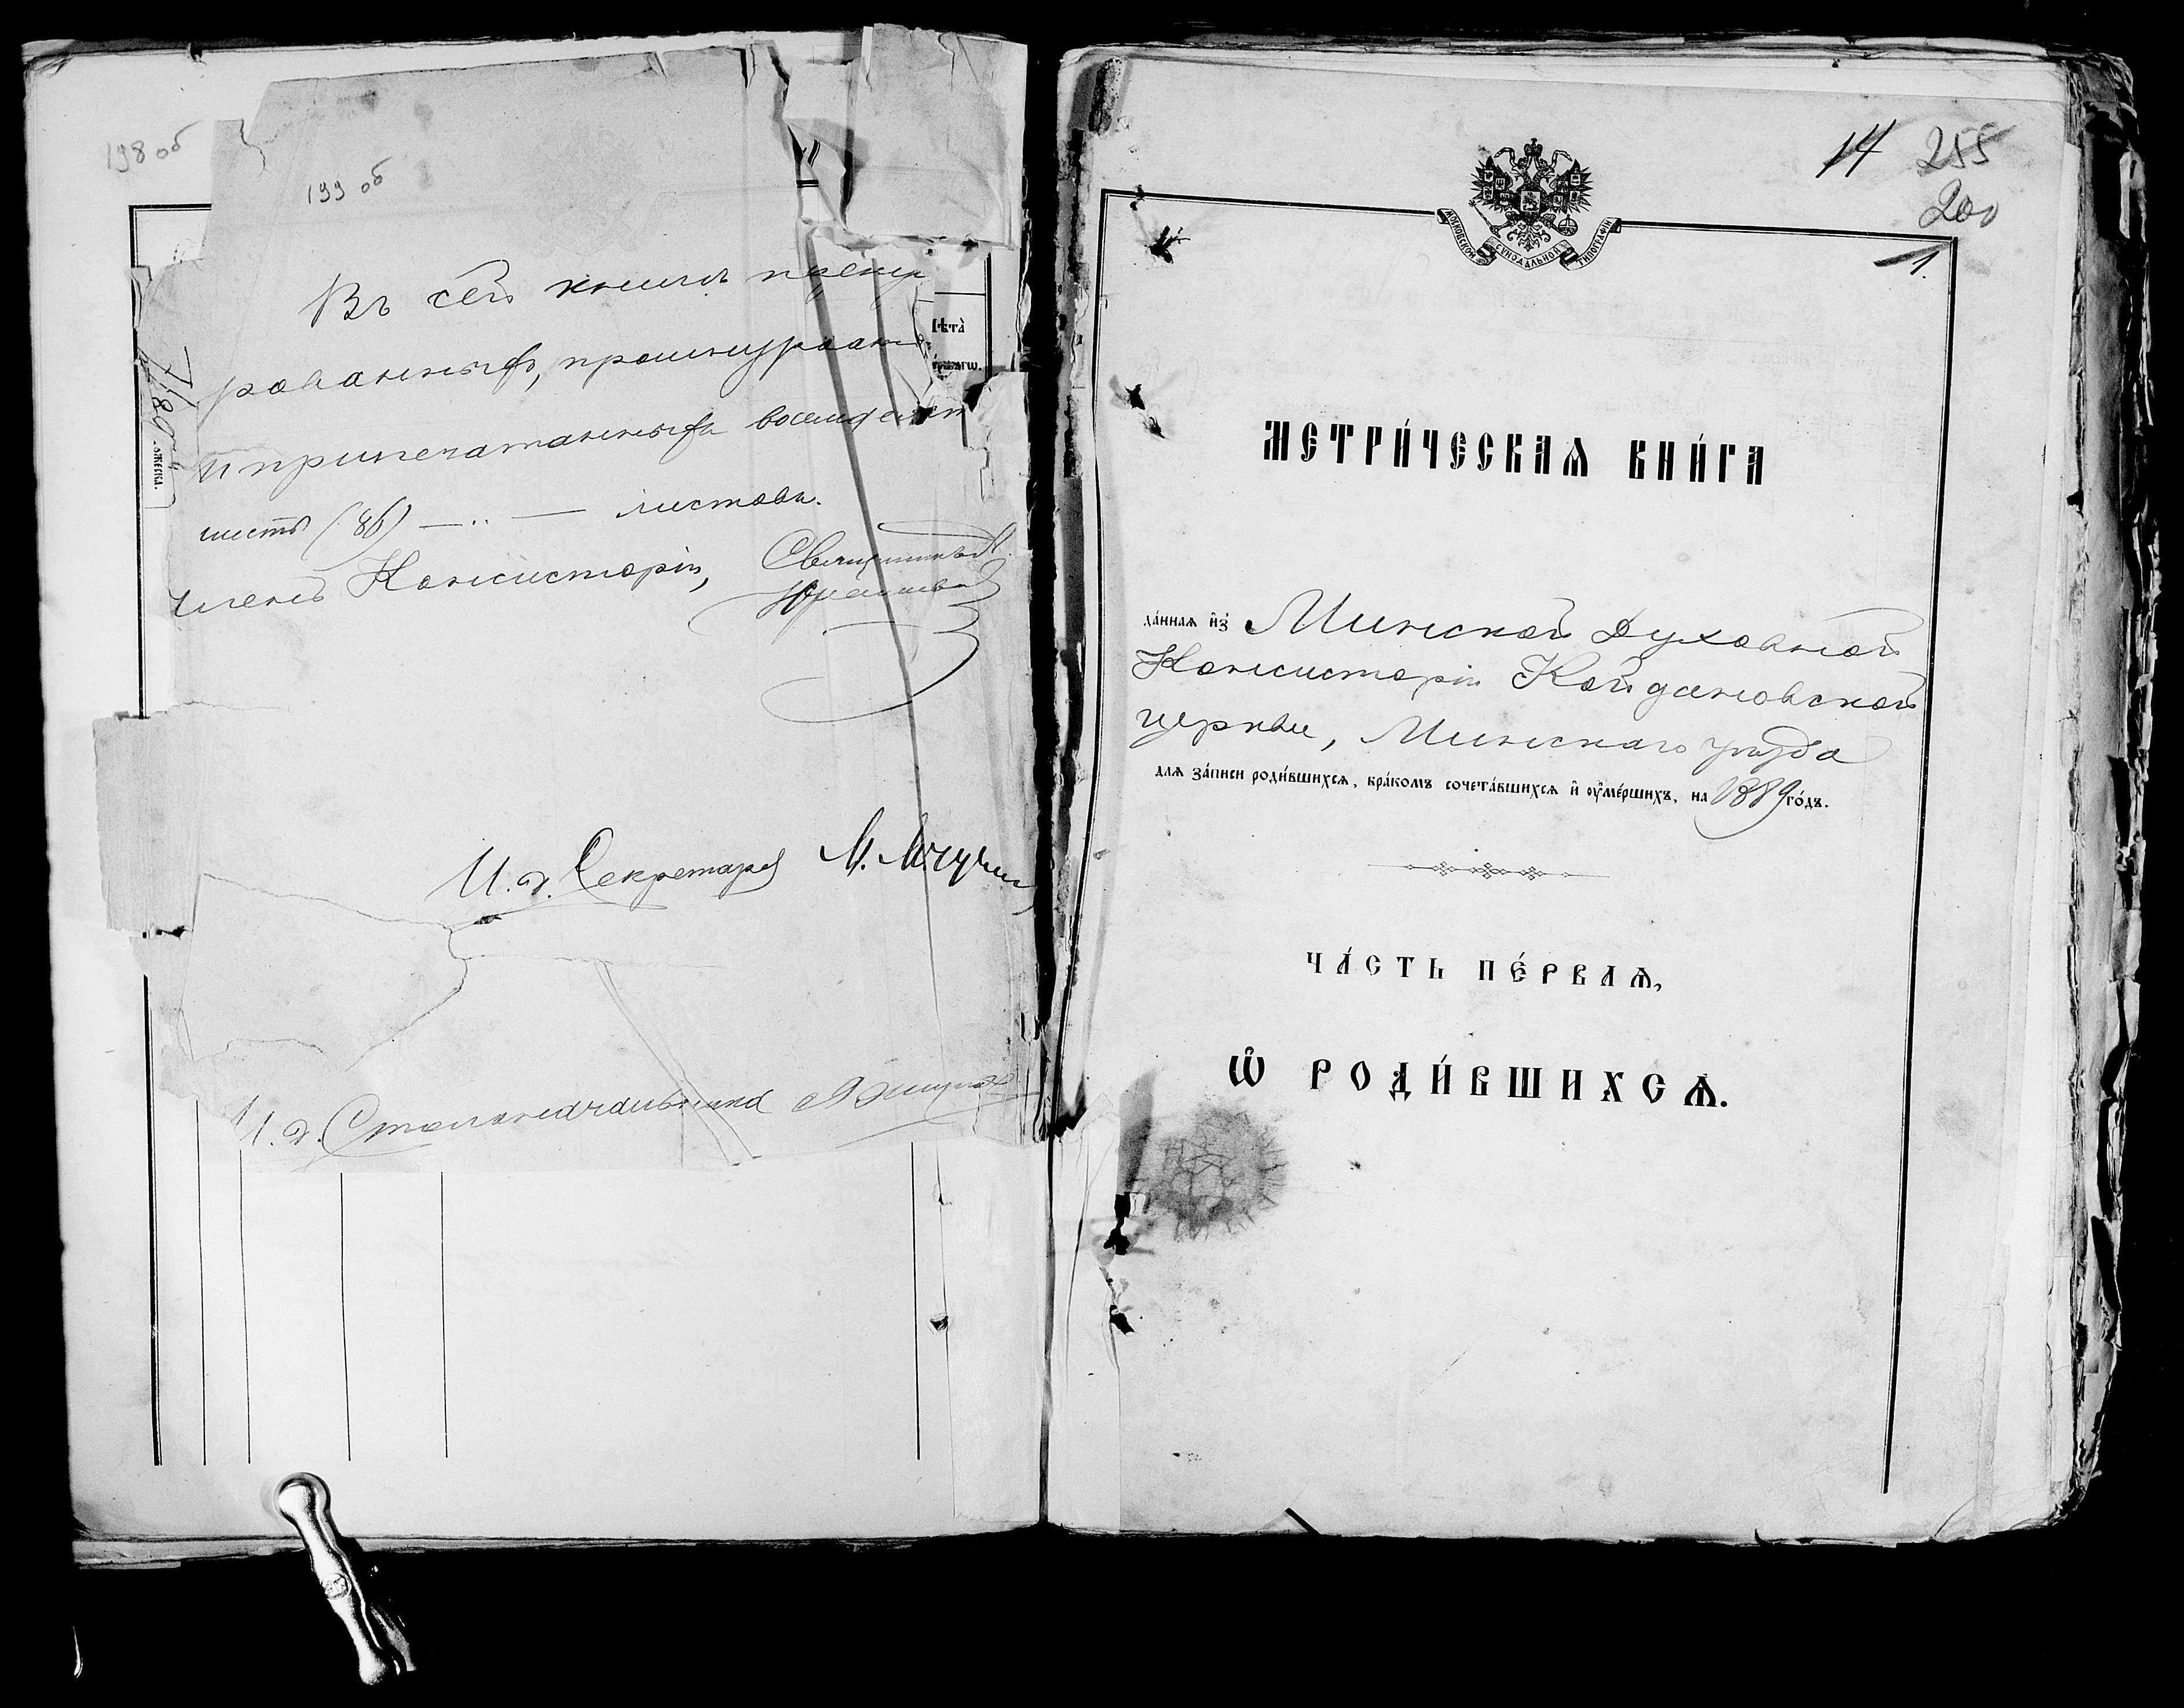 198 об
199 об
Въ сей книгѣ прену
рованныхъ, прошнурован
и припечатанныхъ восемдесят
шесть (86) — " — листовъ.
Членъ Консисторіи, Священникъ
И. д. Секретаря М.
И. д. Столоначальника
14 255
200
1.
МОСКОВСКОЙ СѴНОДАЛЬНОЙ ТИПОГРАФІИ
МЕТРИ́ЧЕСКАѦ КНИ́ГА
да́ннаѧ и҆з̾ Минской Духовной
Консисторіи Койдановской
церкви, Минскаго уѣзда
длѧ за́писи роди́вшихсѧ, бра́комъ сочета́вшихсѧ и҆ ᲂу҆ме́ршихъ, на 1889 го́дъ.
ЧА́СТЬ ПЕ́РВАѦ,
Ѽ РОДИ́ВШИХСѦ.